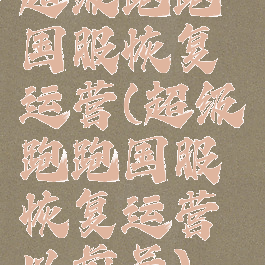 超级跑跑
国服恢复
运营(超级
跑跑国服
恢复运营